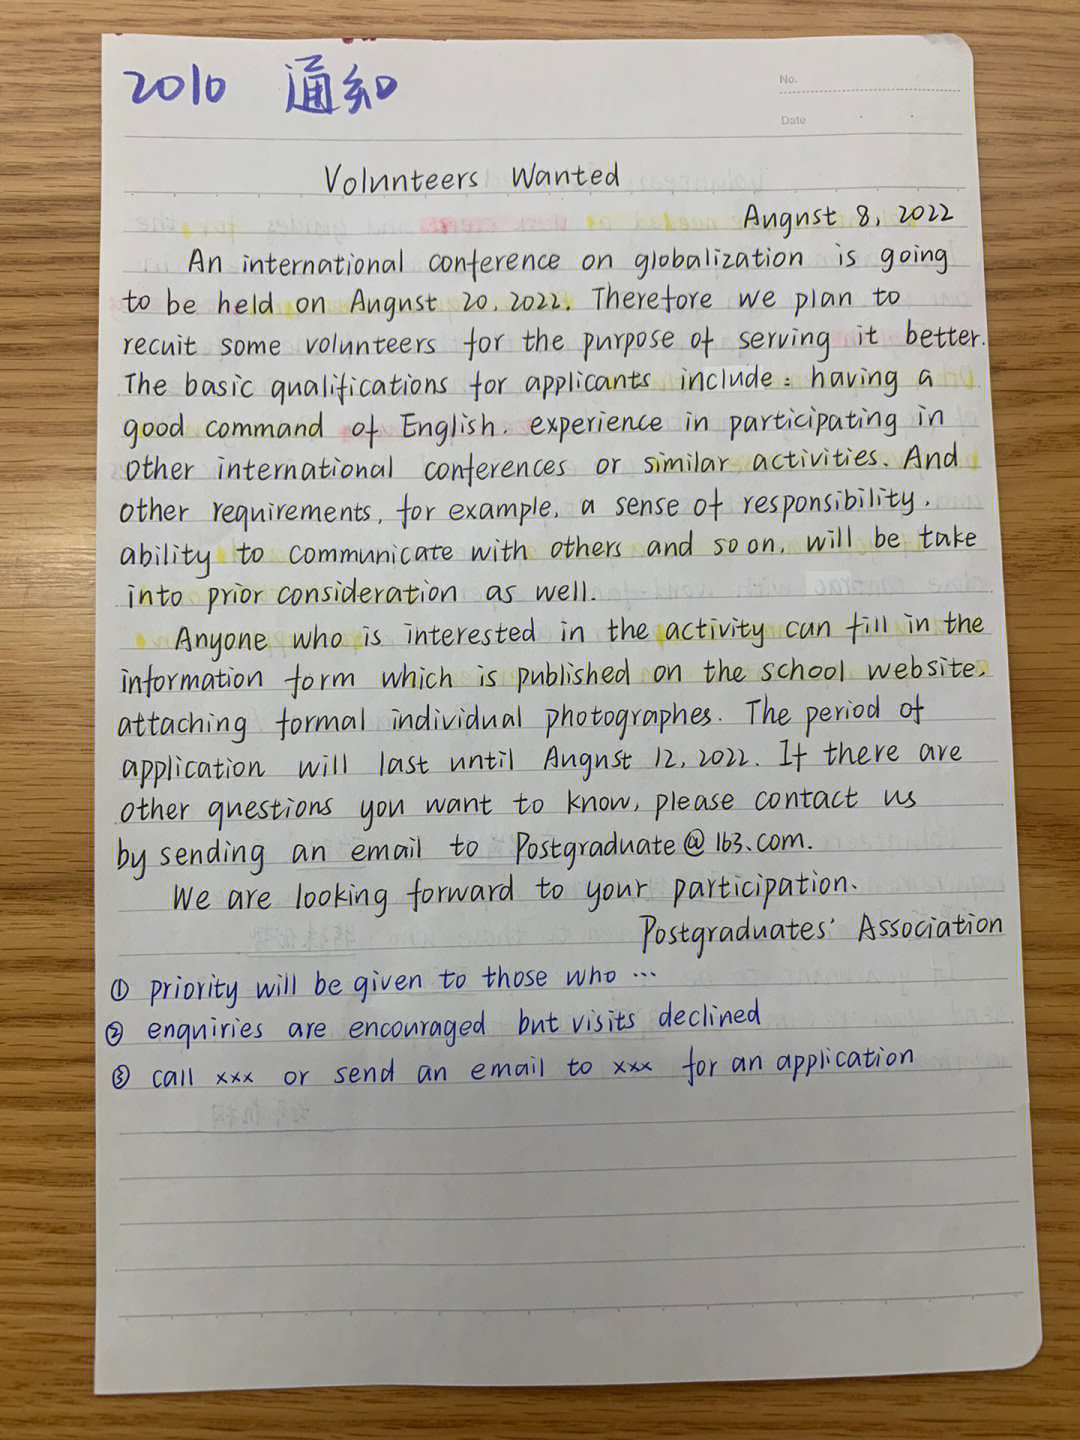 2010 通知
No.
Date
Volunteers Wanted
August 8, 2022
An international conference on globalization is going
to be held on August 20, 2022. Therefore we plan to
recuit some volunteers for the purpose of serving it better.
The basic qualifications for applicants include: having a
good command of English. experience in participating in
other international conferences or similar activities. And
other requirements, for example, a sense of responsibility,
ability to communicate with others and so on, will be take
into prior consideration as well.
Anyone who is interested in the activity can fill in the
information form which is published on the school website,
attaching formal individual photographes. The period of
application will last until August 12, 2022. If there are
other questions you want to know, please contact us
by sending an email to Postgraduate@163.com.
We are looking forward to your participation.
Postgraduates' Association
① priority will be given to those who ...
② enquiries are encouraged but visits declined
③ call xxx or send an email to xxx for an application